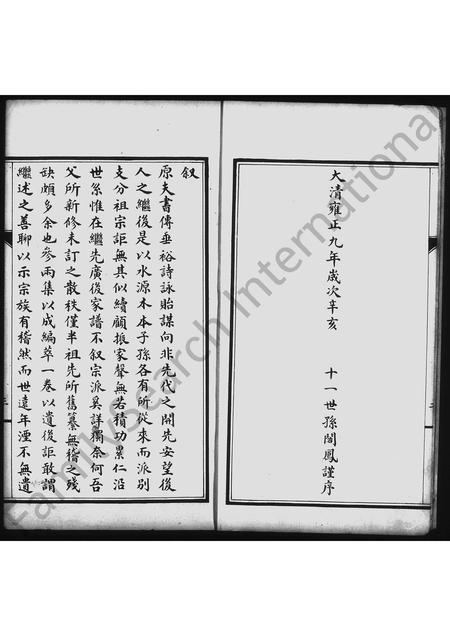 大清雍正九年歲次辛亥 十一世孫閣鳳謹序
叙
原夫書傳垂裕詩詠貽謀向非先代之開先安望後
人之繼後是以水源木本子孫各有所從來而派別
支分祖宗詎無其似續顧振家聲無若積功累仁沿
世系惟在繼先廣後家譜不叙宗派奚詳獨奈何吾
父所新修未訂之散秩僅半祖先所舊纂無稽之殘
缺頗多余也參兩集以成編萃一卷以遺後詎敢謂
繼述之善聊以示宗族有稽然而世遠年湮不無遺
FamilySearch International